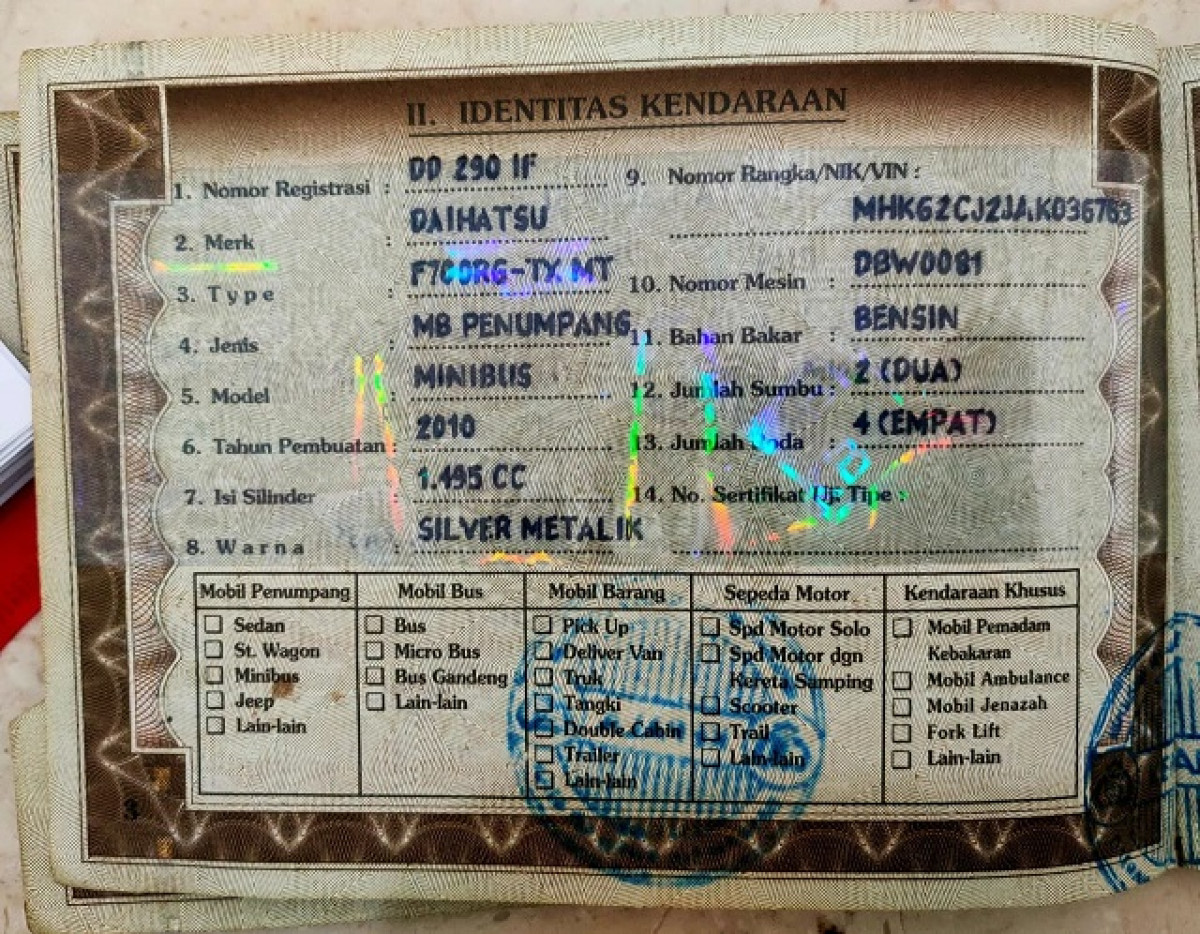 II. IDENTITAS KENDARAAN
1. Nomor Registrasi : DD 290 IF
2. Merk : DAIHATSU
3. Type : F700RG-TX MT
4. Jenis : MB PENUMPANG
5. Model : MINIBUS
6. Tahun Pembuatan : 2010
7. Isi Silinder : 1.495 CC
8. Warna : SILVER METALIK
9. Nomor Rangka/NIK/VIN :
MHKG2CJ2JAK036763
10. Nomor Mesin : DBW0081
11. Bahan Bakar : BENSIN
12. Jumlah Sumbu : 2 (DUA)
13. Jumlah Roda : 4 (EMPAT)
14. No. Sertifikat Uji Tipe :
Mobil Penumpang
Sedan
St. Wagon
Minibus
Jeep
Lain-lain
Mobil Bus
Bus
Micro Bus
Bus Gandeng
Lain-lain
Mobil Barang
Pick Up
Deliver Van
Truk
Tangki
Double Cabin
Trailer
Lain-lain
Sepeda Motor
Spd Motor Solo
Spd Motor dgn
Kereta Samping
Scooter
Trail
Lain-lain
Kendaraan Khusus
Mobil Pemadam
Kebakaran
Mobil Ambulance
Mobil Jenazah
Fork Lift
Lain-lain
3